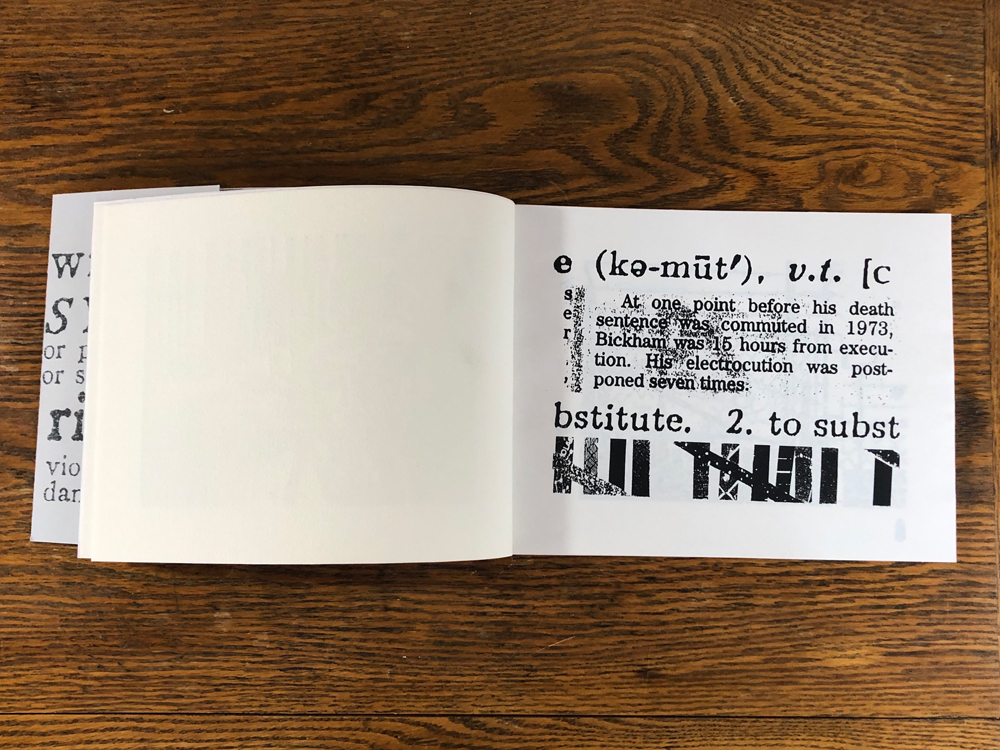 w
s
or p
or s
ri
vio
dan
e (kə-mūt′), v.t. [c
s
e
r
,
At one point before his death
sentence was commuted in 1973,
Bickham was 15 hours from execu-
tion. His electrocution was post-
poned seven times.
bstitute. 2. to subst